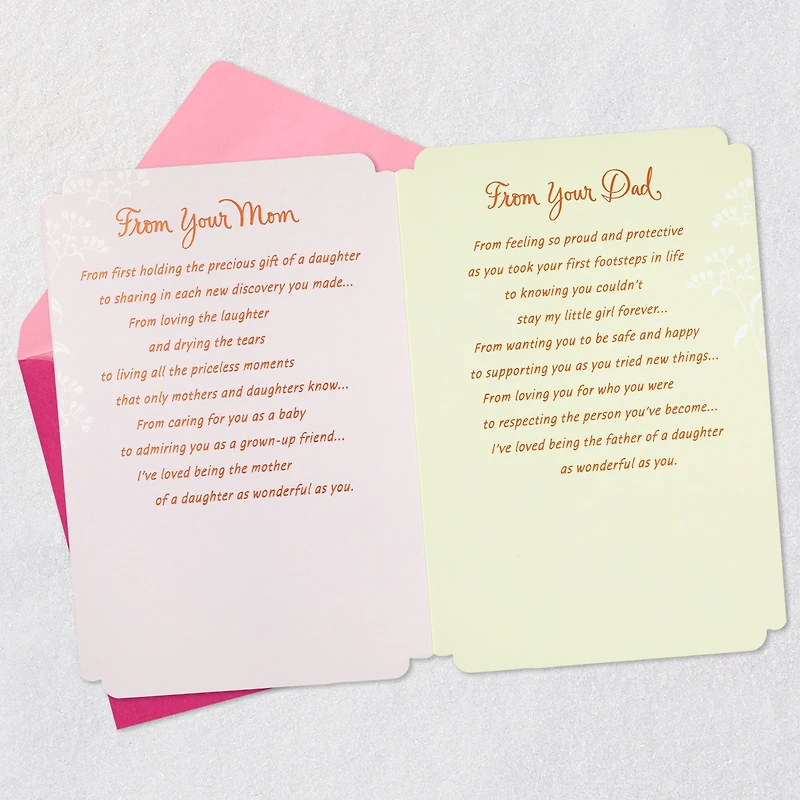 From Your Mom
From first holding the precious gift of a daughter
to sharing in each new discovery you made...
From loving the laughter
and drying the tears
to living all the priceless moments
that only mothers and daughters know...
From caring for you as a baby
to admiring you as a grown-up friend...
I've loved being the mother
of a daughter as wonderful as you.
From Your Dad
From feeling so proud and protective
as you took your first footsteps in life
to knowing you couldn't
stay my little girl forever...
From wanting you to be safe and happy
to supporting you as you tried new things...
From loving you for who you were
to respecting the person you've become...
I've loved being the father of a daughter
as wonderful as you.